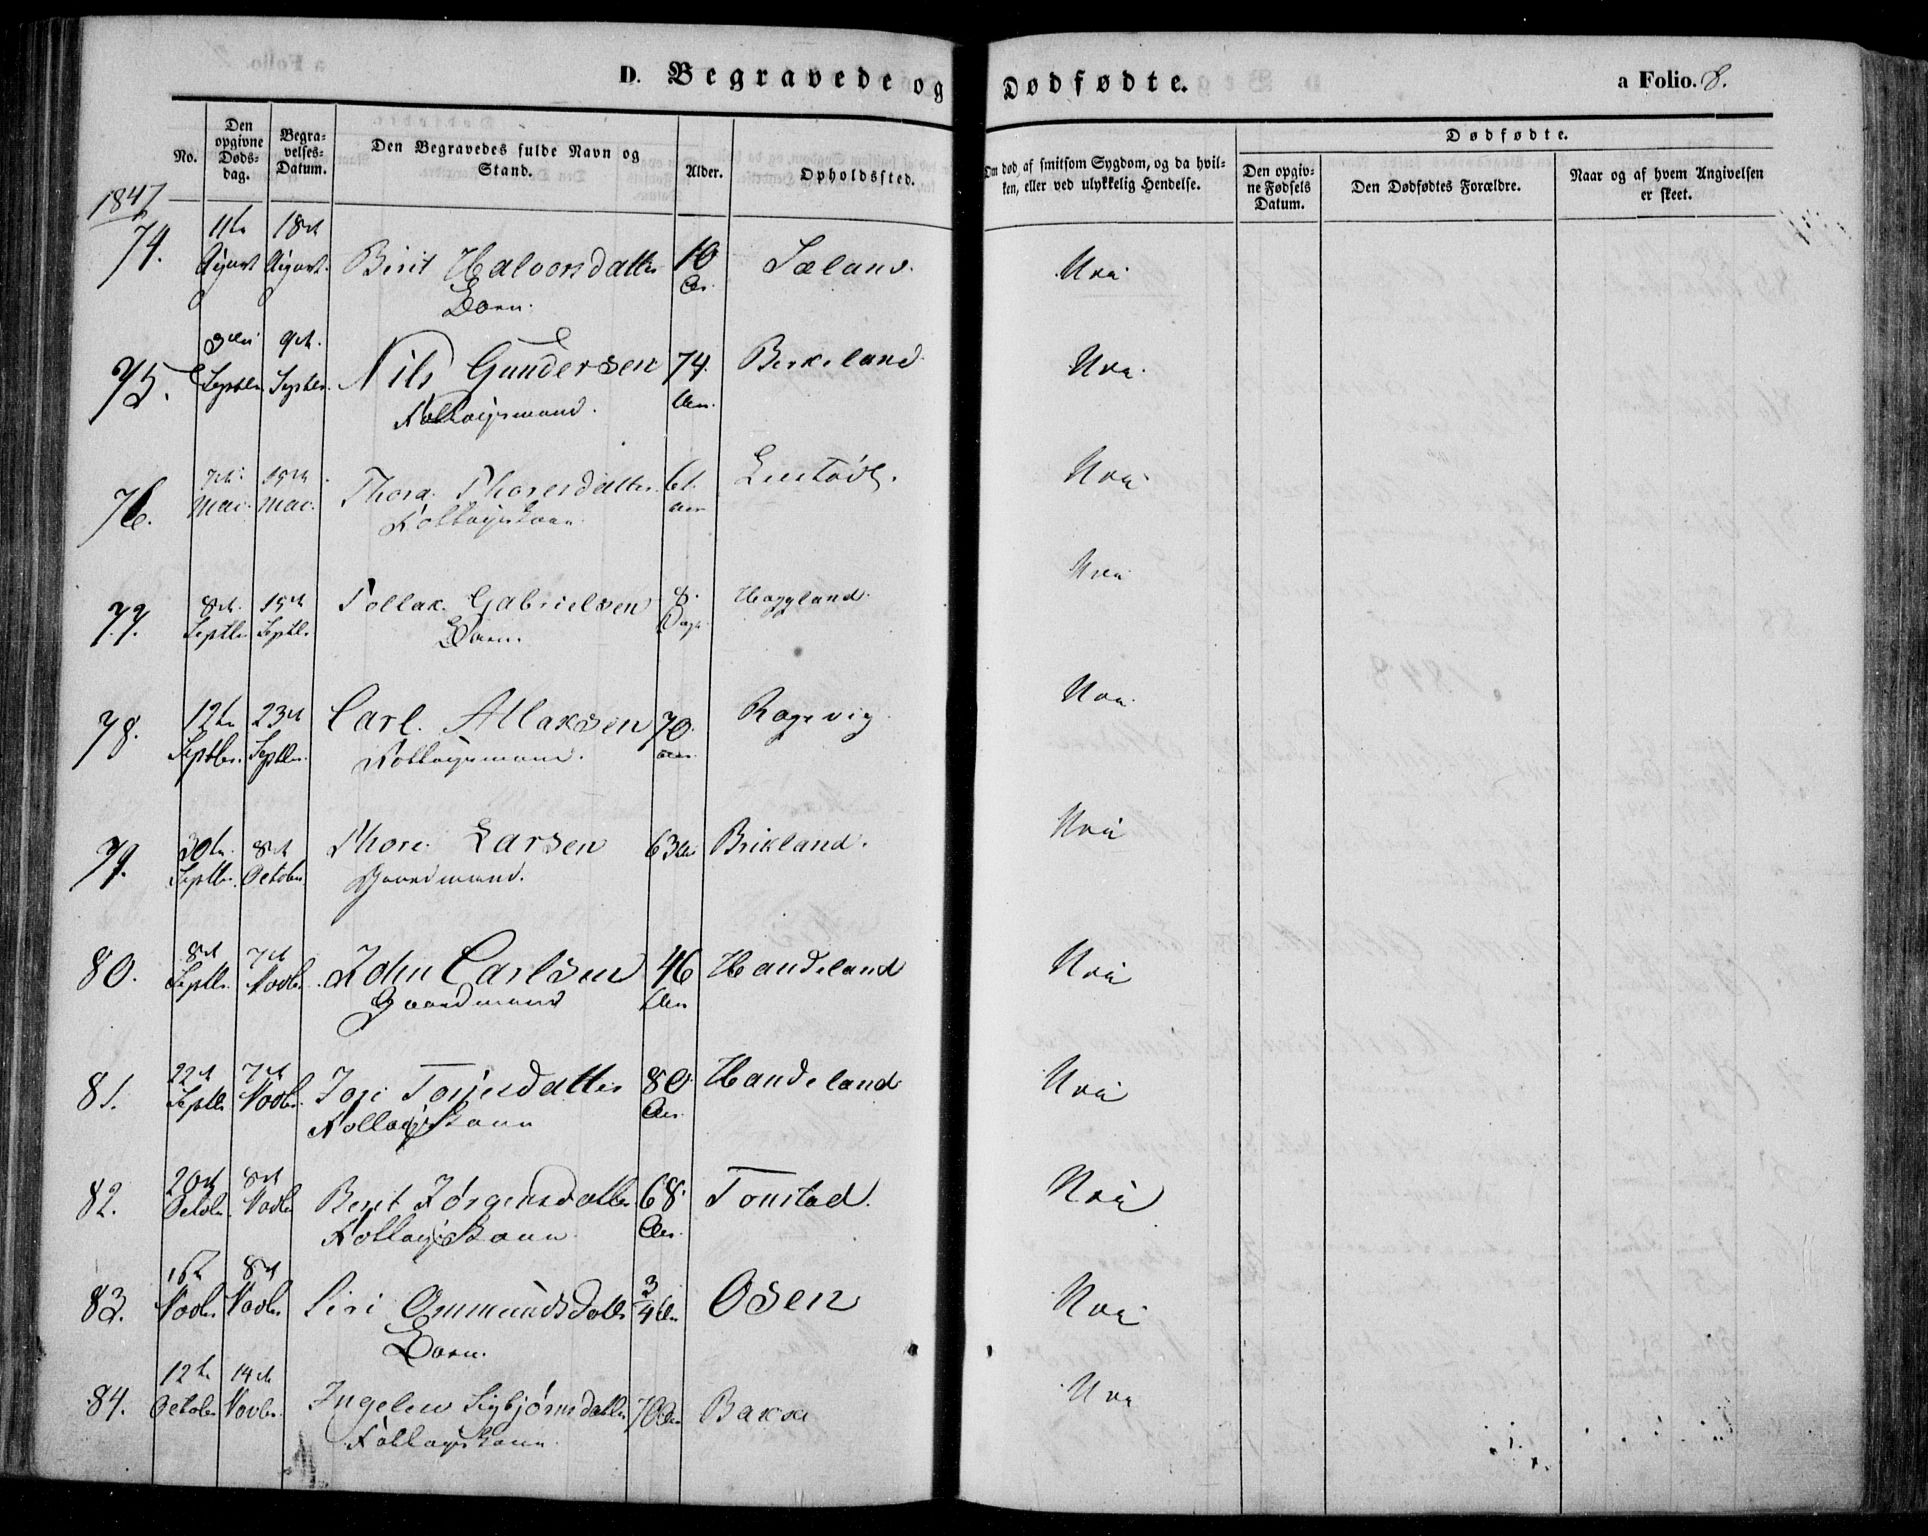 D. Begravede og Dødfødte.
a Folio. 8.
No.
Den opgivne Døds-dag.
Begra-velses-Datum.
Den Begravedes fulde Navn og Stand.
Alder.
Opholdssted.
Om død af smitsom Sygdom, og da hvil-ken, eller ved ulykkelig Hendelse.
Dødfødte.
Den opgiv-ne Fødsels Datum.
Den Dødfødtes Forældre.
Naar og af hvem Angivelsen er skeet.
1847
74. 11te August 18de August. Berit Halvorsdatter 10 Aar. Sæland. Nei.
Barn.
75. 3die Septbr. 9de Septbr. Nils Gundersen 74. Aar. Birkeland Nei.
Follaugsmand.
76. 7de Mai. 15de Mai. Thora Thoresdatter 61. Aar Nei.
Follaugskone.
77. 8de Septbr. 15de Septbr. Tollak Gabrielsen 8. Dage Haugland. Nei
Barn.
78. 12te Septbr. 23de Septbr. Carl. Atlaksen 70. Aar. Ragevig. Nei.
Follaugsmand.
79. 30te Septbr. 8de October. Thore Larsen 63 Aar Brikland. Nei
Gaardmand.
80. 8de Septbr. 7de Novbr. John Carlsen 46 Aar Handeland Nei
Gaardmand
81. 22de Septbr. 7de Novbr. Tori Torjusdatter 80 Aar. Handeland Nei
Follaugskone
82. 20de Octobr. 8de Novbr Berit Jørgensdatter 68. Aar. Tonstad. Nei
Follaugskone
83. Novbr. 8de Novbr Siri Ommundsdatter 3/4 Aar Osen Nei
Barn.
84. 12te Octobr. 14de Novbr. Ingeleu Sigbjørnsdatter 70 Aar Bakke Nei
Follaugskone.